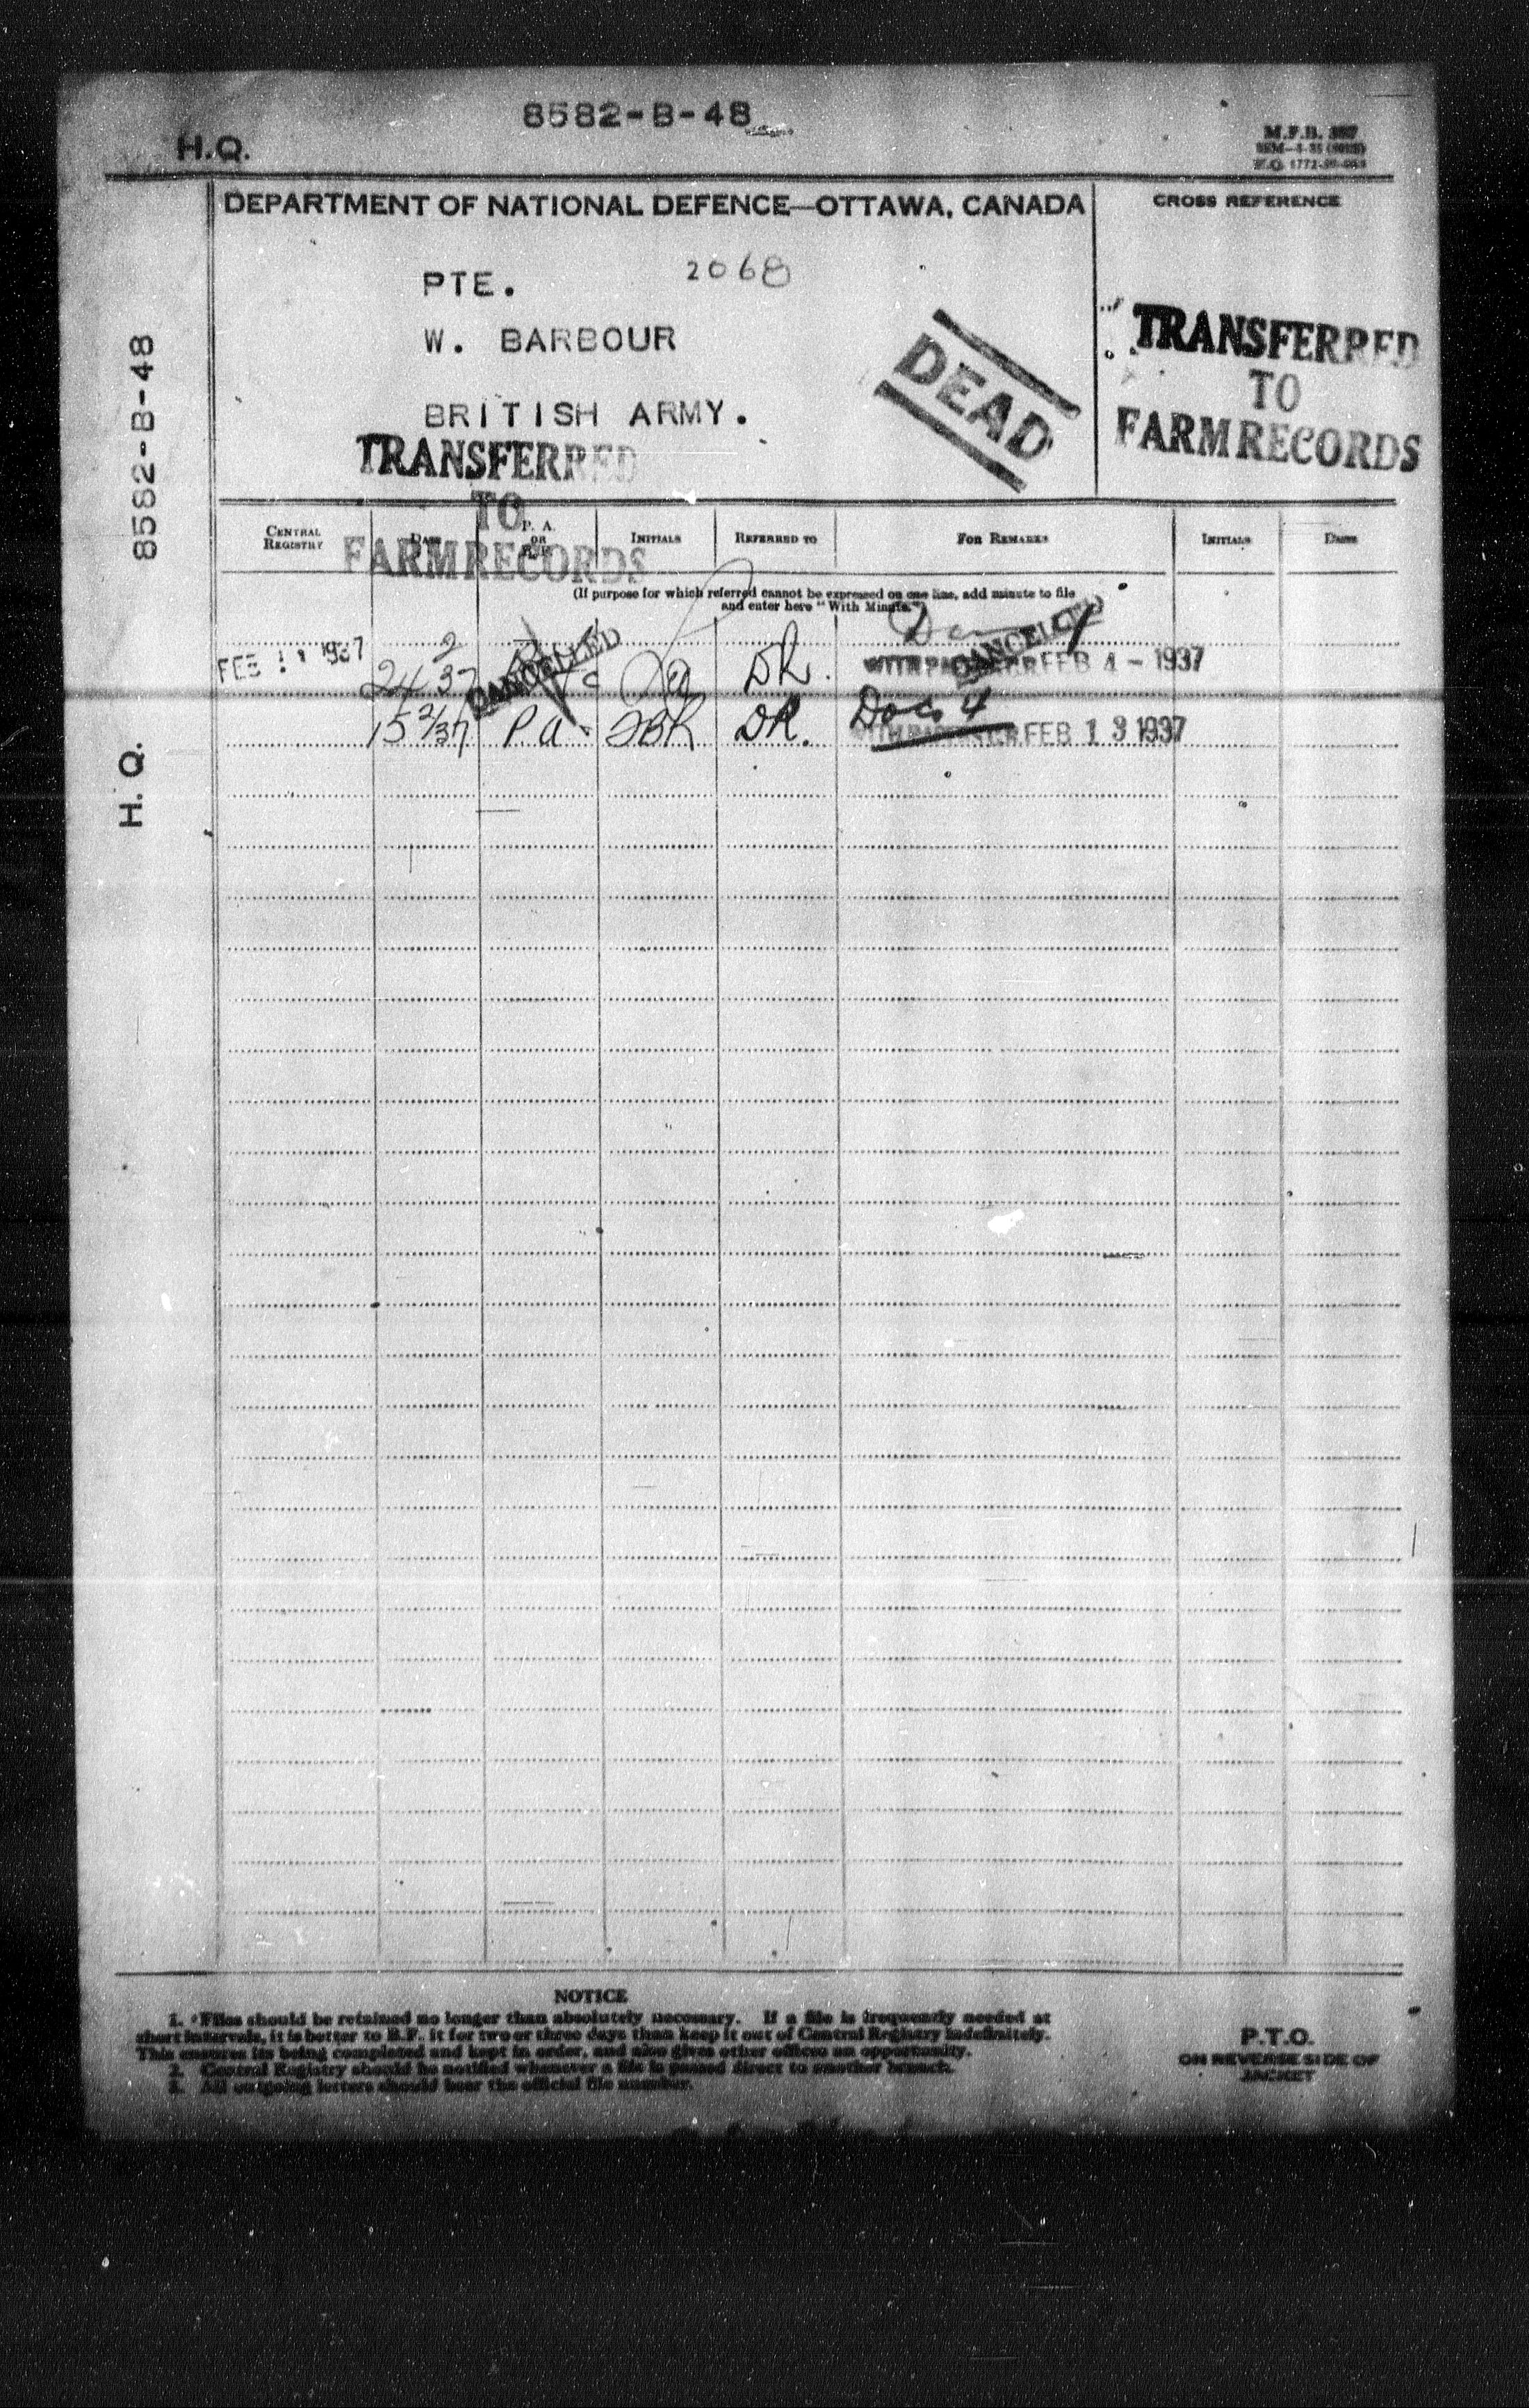 8582-B-48
H.Q.
M.F.B.
DEPARTMENT OF NATIONAL DEFENCE—OTTAWA, CANADA
CROSS REFERENCE
PTE. 2068
W. BARBOUR
BRITISH ARMY.
DEAD
TRANSFERRED
TO
FARM RECORDS
TRANSFERRED
TO
FARM RECORDS
8582-B-48
H. Q.
CENTRAL REGISTRY
DATE
P. A. OR B.F.
INITIALS
REFERRED TO
FOR REMARKS
INITIALS
DATE
(If purpose for which referred cannot be expressed on one line, add minute to file
and enter here "With Minute.")
FEB 1937 CANCELLED DR. CANCELLED FEB 4 - 1937
15 2/37 P a. DR. Docs 4 FEB 13 1937
NOTICE
1. Files should be retained no longer than absolutely necessary. If a file is frequently needed at
short intervals, it is better to B.F. it for two or three days than keep it out of Central Registry indefinitely.
This ensures its being completed and kept in order, and also gives other offices an opportunity.
2. Central Registry should be notified whenever a file is passed direct to another branch.
3. All outgoing letters should bear the official file number.
P.T.O.
ON REVERSE SIDE OF
JACKET